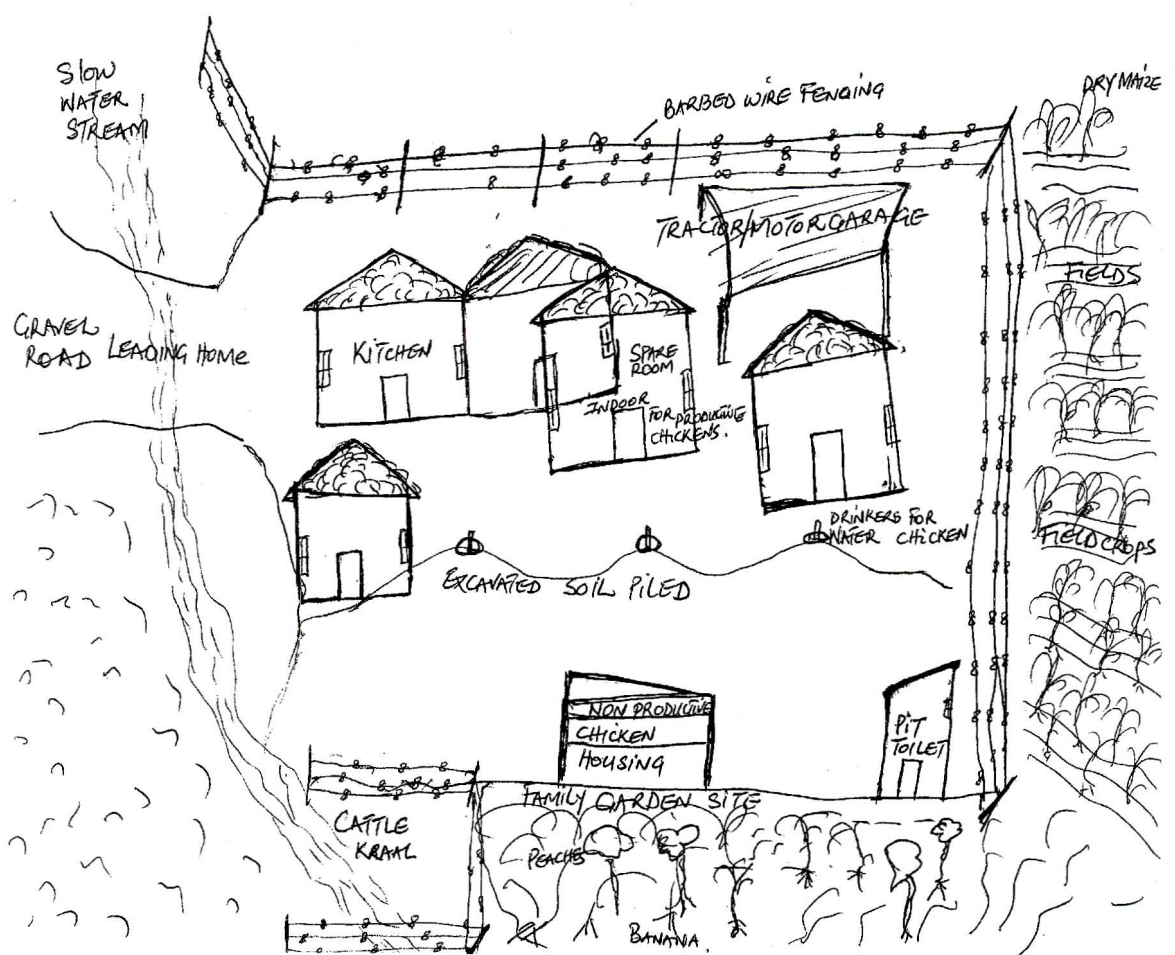 SLOW
WATER
STREAM
BARBED WIRE FENCING
DRY MAIZE
TRACTOR/MOTOR GARAGE
FIELDS
GRAVEL
ROAD LEADING HOME
KITCHEN
SPARE
ROOM
INDOOR
FOR PRODUCTIVE
CHICKENS.
DRINKERS FOR
WATER CHICKEN
FIELD CROPS
EXCAVATED SOIL PILED
NON PRODUCTIVE
CHICKEN
HOUSING
PIT
TOILET
FAMILY GARDEN SITE
CATTLE
KRAAL
PEACHES
BANANA.